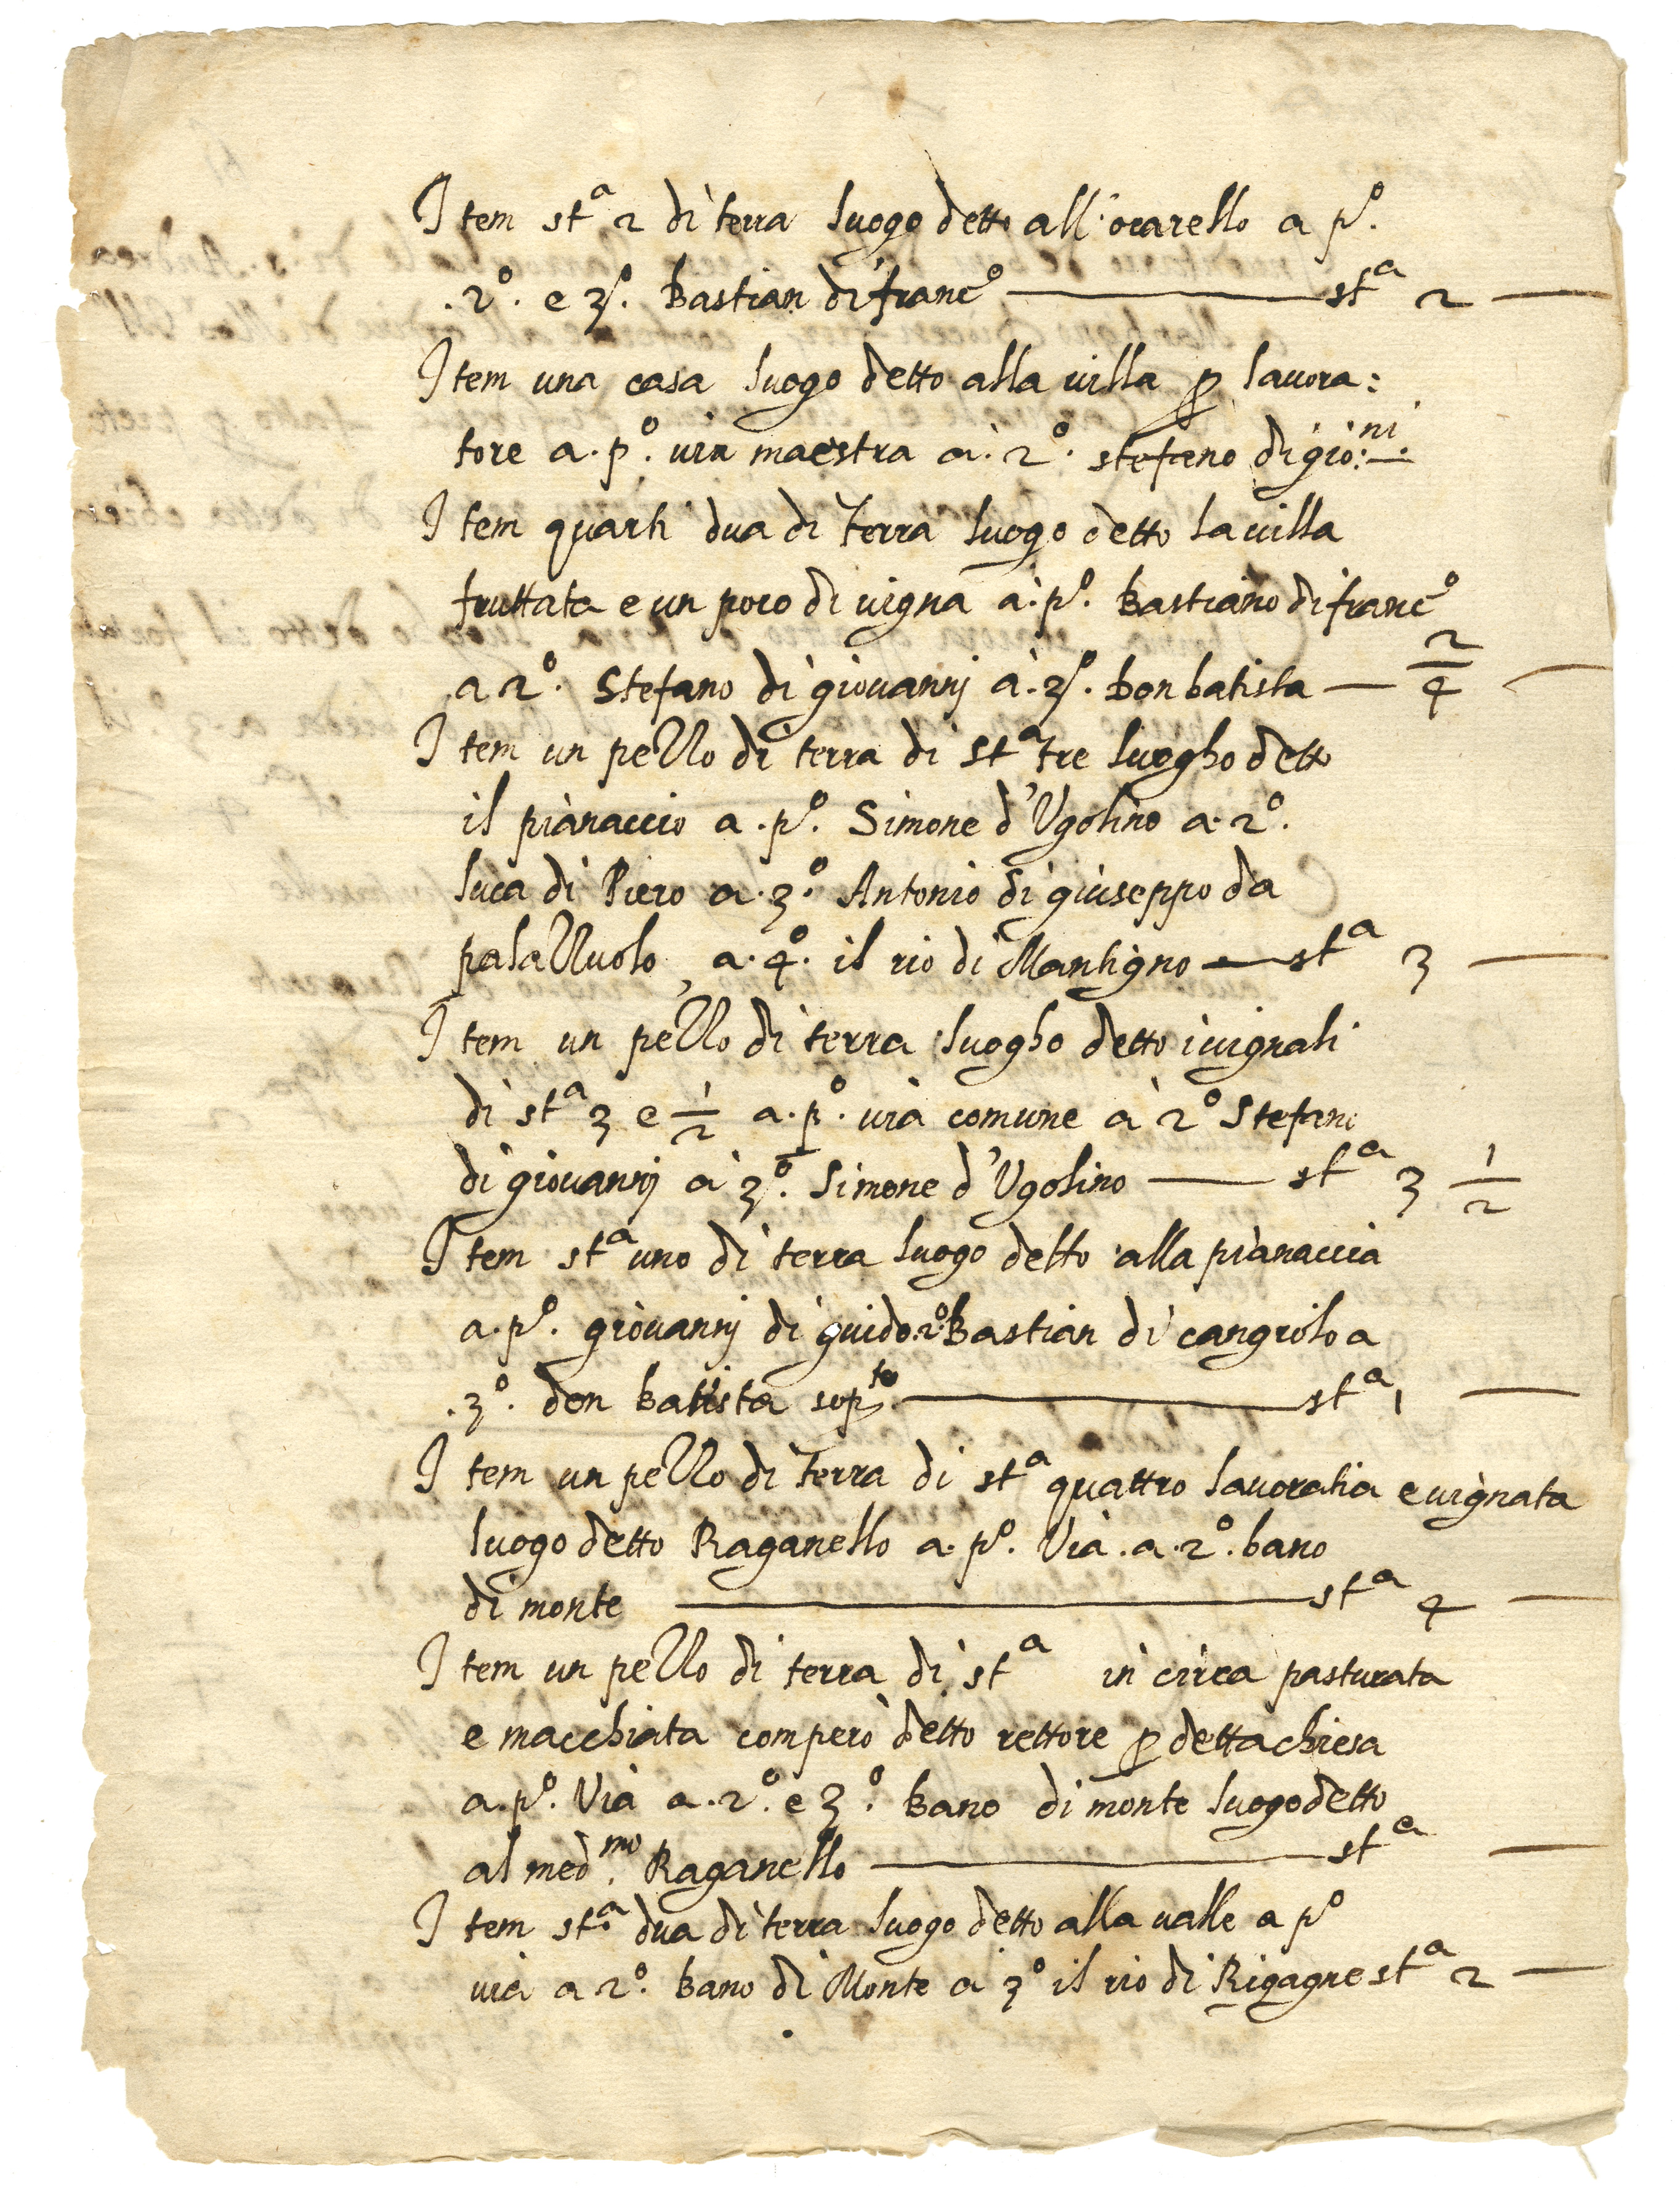 Item st.a 2 di terra luogo detto all'ocarello a p.o
.2.o e 3.o Bastian di franc.o — st.a 2 —
Item una casa luogo detto alla uilla p lauora:
tore a. p.o uia maestra a. 2.o stefano di gio:ni
Item quarti dua di terra luogo detto la uilla
fruttata e un poco di uigna a. p.o Bastiano di franc.o
a 2.o Stefano di giouannj a. 3.o Don batista — 2/4 —
Item un pezzo di terra di st.a tre luogho detto
il pianaccio a. p.o Simone d'Vgolino a. 2.o
luca di Piero a. 3.o Antonio di giuseppo da
palazzuolo, a. 4.o il rio di Mantigno — st.a 3 —
Item un pezzo di terra luogho detto i uignali
di st.a 3 e 1/2 a. p.o uia comune a 2.o Stefano
di giouannj a 3.o Simone d'Vgolino — st.a 3 1/2
Item st.a uno di terra luogo detto alla pianaccia
a. p.o giouannj di guido. 2.o Bastian di cangiolo a
.3.o don Batista sop.to — st.a 1 —
Item un pezzo di terra di st.a quattro lauoratia e uignata
luogo detto Raganello a. p.o Via. a. 2.o bano
di monte — st.a 4 —
Item un pezzo di terra di st.a in circa pasturata
e macchiata comperò detto rettore p detta chiesa
a. p.o Via a. 2.o e 3.o Bano di monte luogo detto
al med.mo Raganello — st.a —
Item st.a dua di terra luogo detto alla ualle a p.o
uia a 2.o Bano di Monte a 3.o il rio di Rigagne st.a 2 —